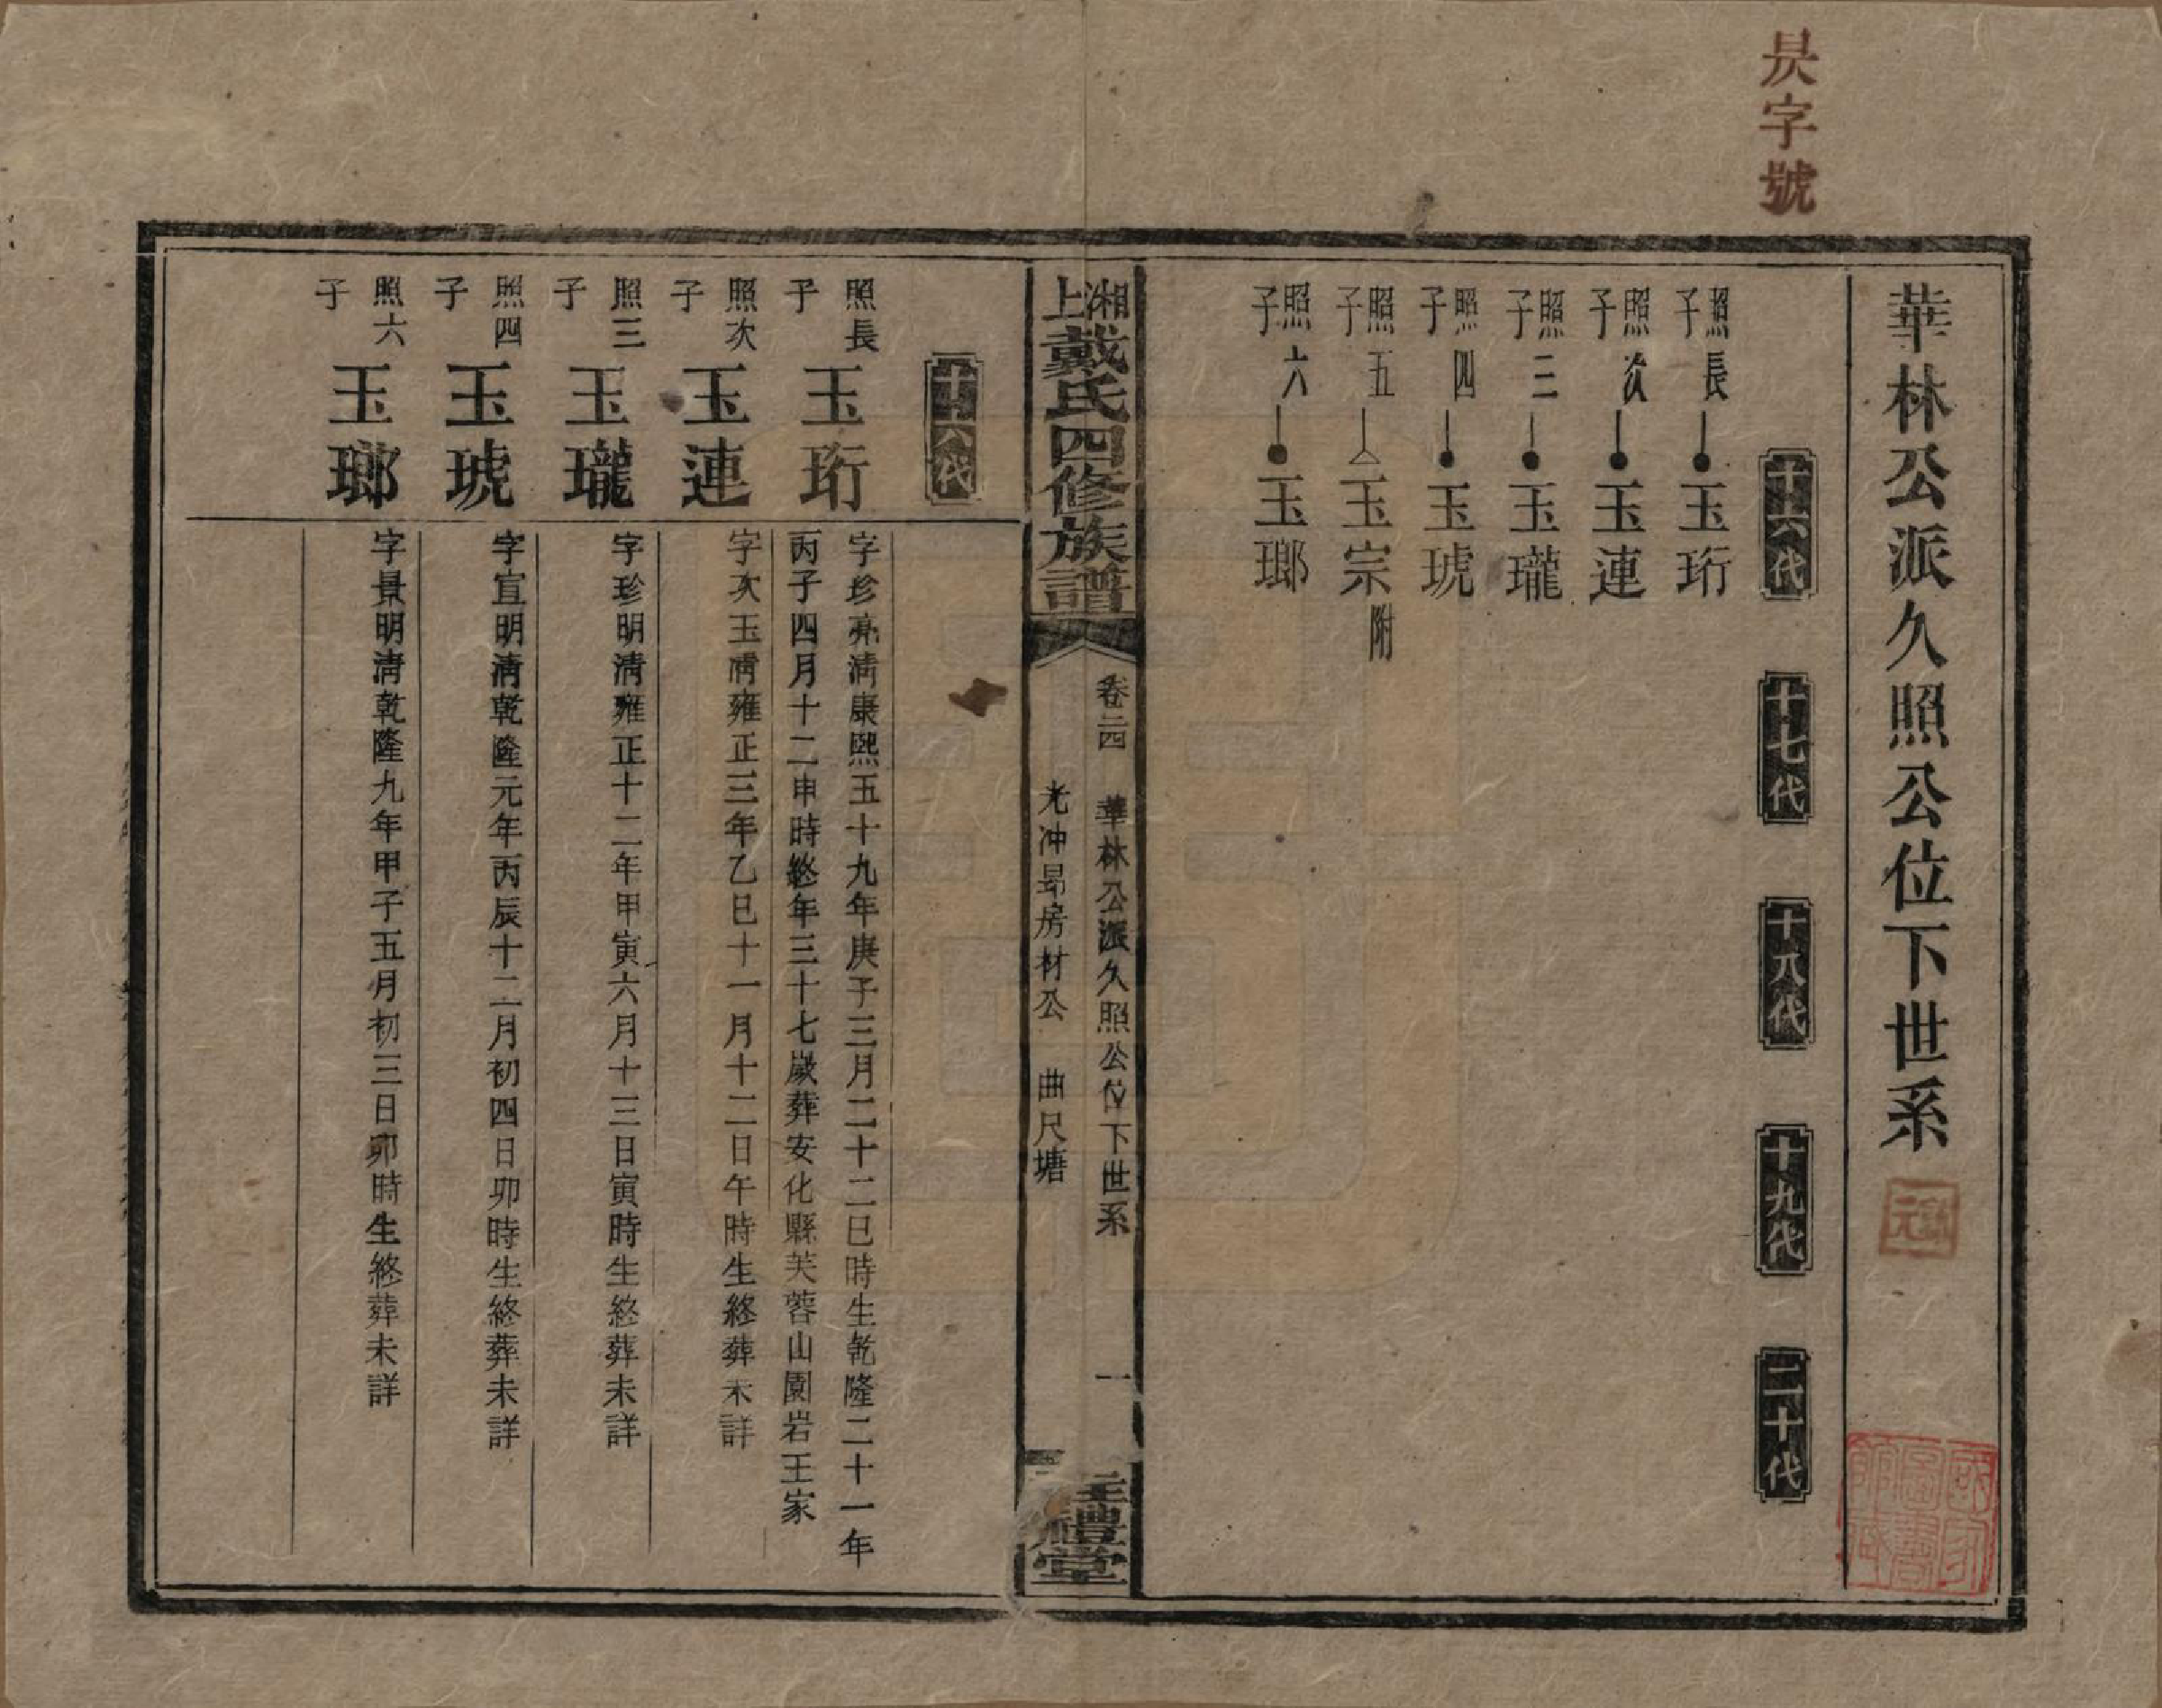 昃字號
華林公派久照公位下世系
十六代
十七代
十八代
十九代
二十代
照長子
玉珩
照次子
玉連
照三子
玉瓏
照四子
玉琥
照五子
玉宗附
照六子
玉瑯
湘上戴氏四修族譜
卷二四 華林公派久照公位下世系 一
光沖昜房材公 曲尺塘
禮堂
十六代
照長子
玉珩
字珍亮清康熙五十九年庚子三月二十二巳時生乾隆二十一年
丙子四月十二申時終年三十七歲葬安化縣芙蓉山園岩王家
照次子
玉連
字次玉清雍正三年乙巳十一月十二日午時生終葬未詳
照三子
玉瓏
字珍明清雍正十二年甲寅六月十三日寅時生終葬未詳
照四子
玉琥
字宣明清乾隆元年丙辰十二月初四日卯時生終葬未詳
照六子
玉瑯
字景明清乾隆九年甲子五月初三日卯時生終葬未詳